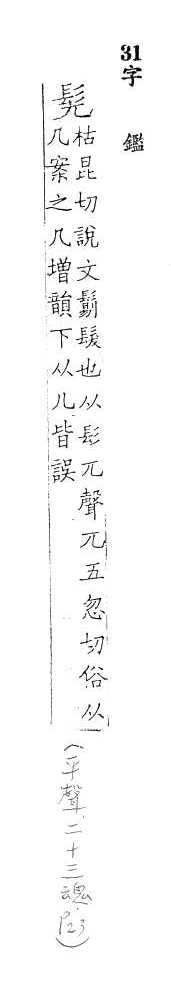 31字　鑑
髡
枯昆切說文髮也从髟兀聲兀五忽切俗从
几案之几增韻下从儿皆誤
(平聲二十三魂 P.23)